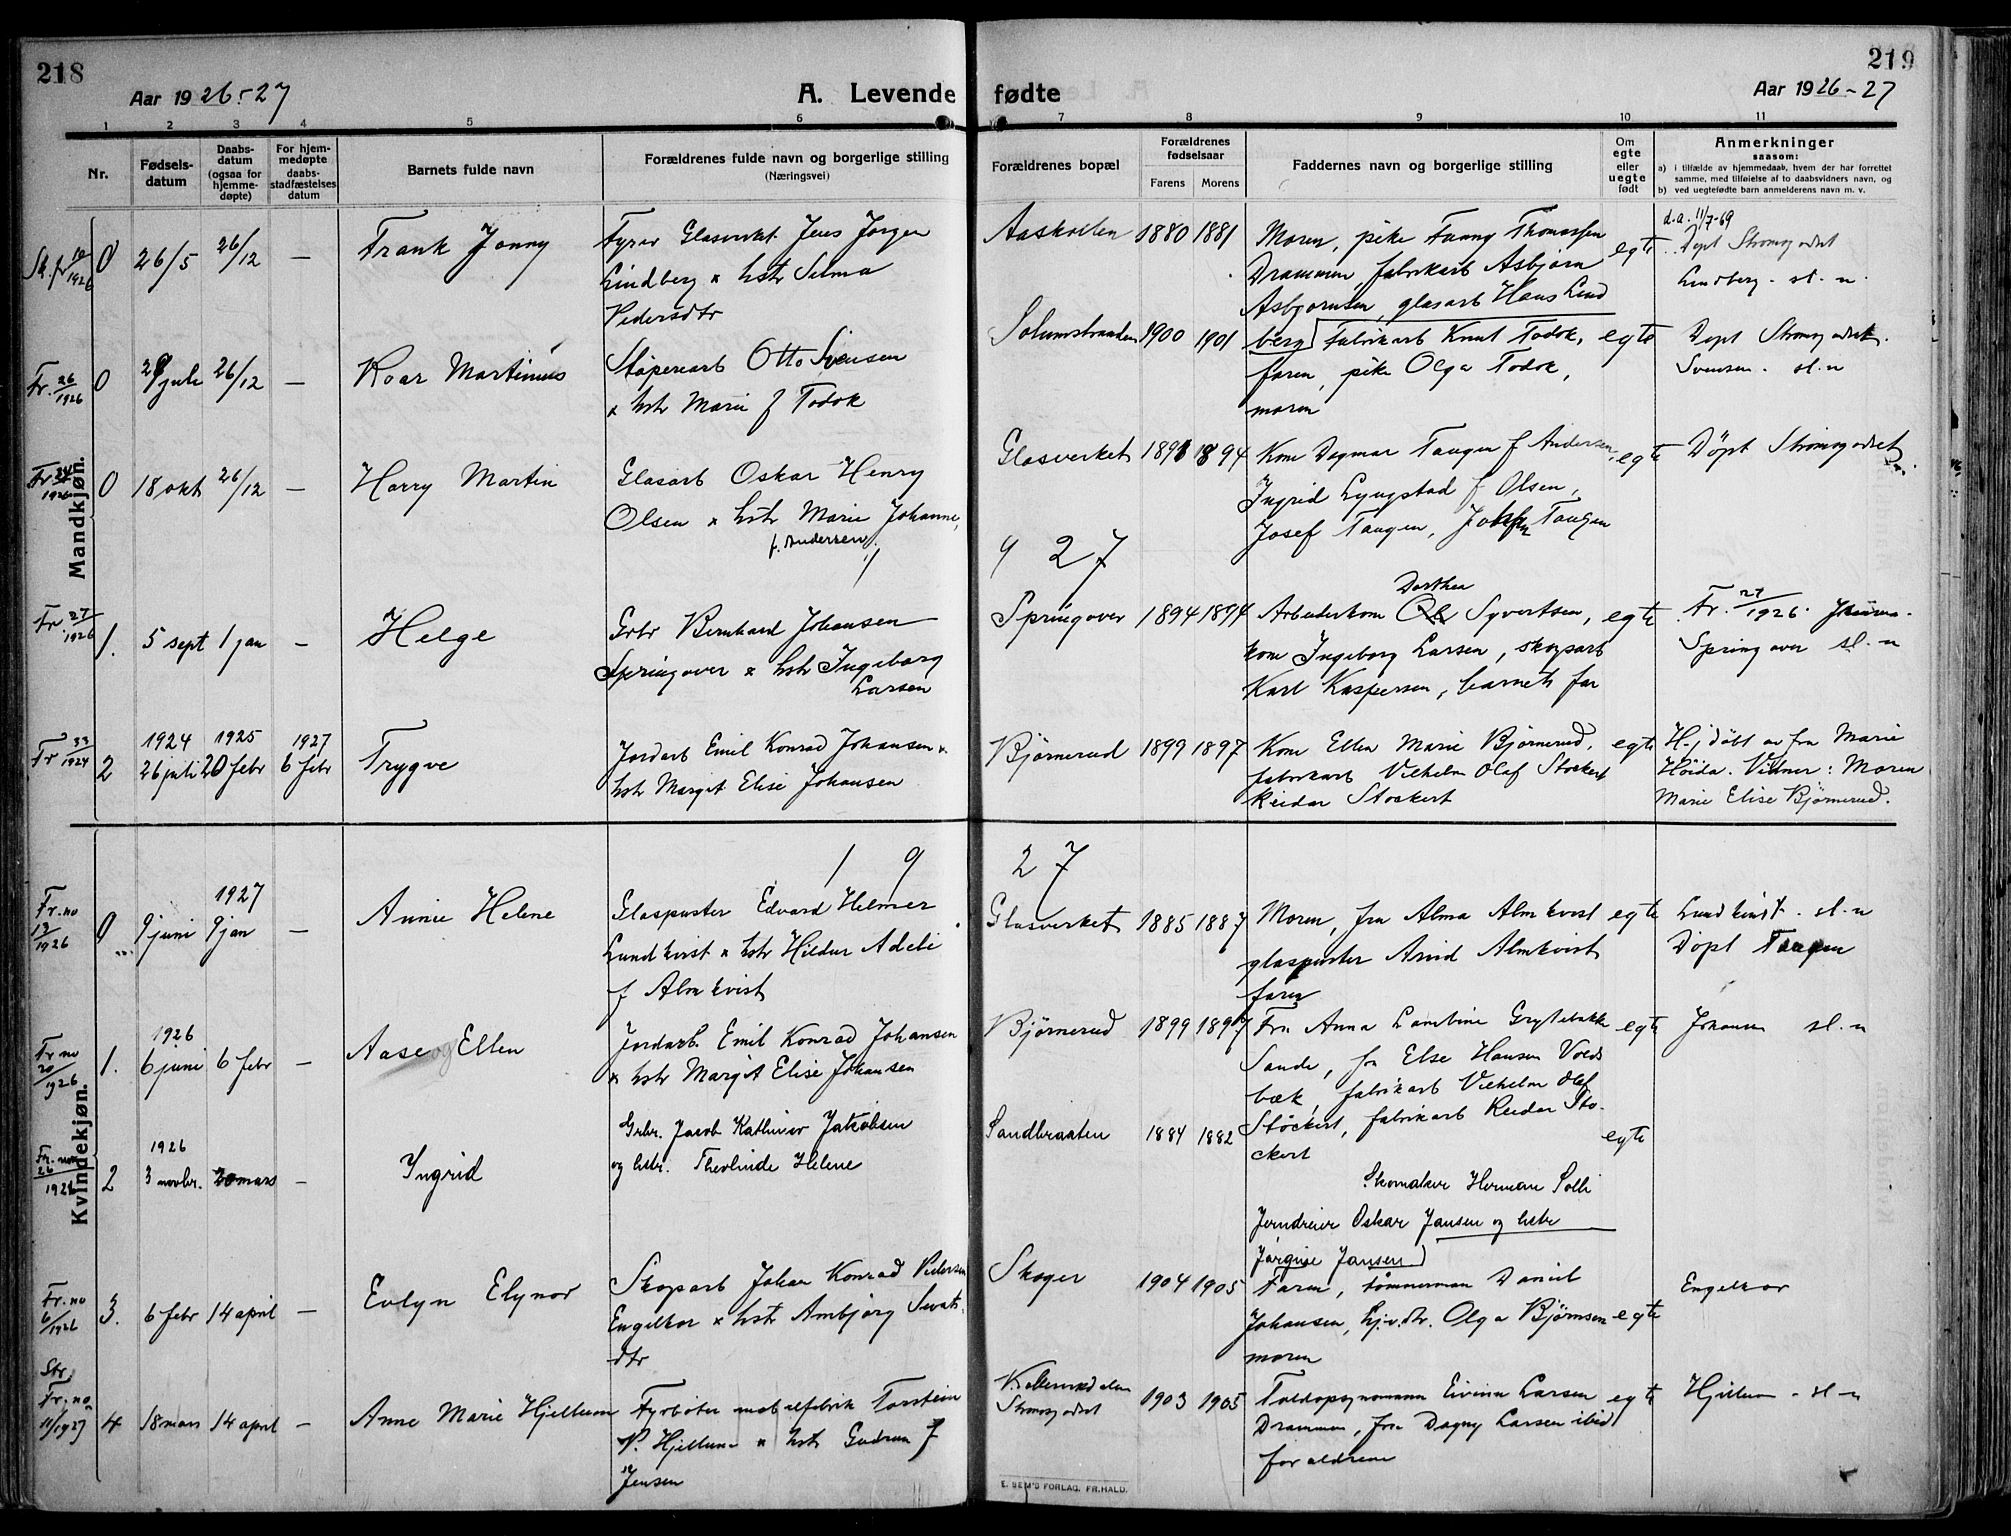 218
Aar 1926-27
A. Levende fødte
219
Aar 1926-27
1 2 3 4 5 6 7 8 9 10 11
Nr.
Fødsels-
datum
Daabs-
datum
(ogsaa for
hjemme-
døpte)
For hjem-
medøpte
daabs-
stadfæstelses
datum
Barnets fulde navn
Forældrenes fulde navn og borgerlige stilling
(Næringsvei)
Forældrenes bopæl
Forældrenes
fødselsaar
Farens Morens
Faddernes navn og borgerlige stilling
Om
egte
eller
uegte
født
Anmerkninger
saasom:
a) i tilfælde av hjemmedaab, hvem der har forrettet
samme, med tilføielse av to daabsvidners navn, og
b) ved uegtefødte barn anmelderens navn m. v.
Mandkjøn.
0 26/5 26/12 — Frank Jonny
Fyrer Glasverket Jens Jørgen
Lindberg x hstr Selma
Pedersdtr
Aaskollen 1880 1881
Moren, pike Fanny Thomassen
Drammen, fabrikarb Asbjørn
Asbjørnsen, glasarb Hans Lind
berg
egte
d.a. 11/7-69
Døpt Strømsgodset
Lindberg. sl. n.
Fr. 26/1926 0 juli 26/12 — Roar Martinius
Støperiarb Otto Svensen
x hstr Marie f Todok
Solumstranden 1900 1901
Fabrikarb Knut Todok,
faren, pike Olga Todok,
moren
egte
Døpt Strømsgodset.
Svensen. sl. n
Fr. 34/1926 0 18 okt 26/12 — Harry Martin
Glasarb Oskar Henry
Olsen x hstr Marie Johanne,
f. Andersen.
Glasverket 1894
Kone Dagmar Tangen f Andersen,
Ingrid Lyngstad f Olsen,
Josef Tangen, Tangen
egte
Døpt Strømsgodset
1 9 27
Fr 27/1926 1. 5 sept 1 jan — Helge
Grbr Bernhard Johansen
Springover x hstr Ingeborg
Larsen
Springover 1894 1894
Dorthea
Arbeiderkone Syvertsen,
kone Ingeborg Larsen, skogsarb
Karl Kaspersen, barnets far
egte
Fr. 27/1926.
Springover sl. n
Fr 33/1924 2 1924 26 juli 1925 20 febr 1927 6 febr Trygve
Jordarb Emil Konrad Johansen x
hstr Margit Elise Johansen
Bjørnerud 1899 1897
Kone Ellen Marie Bjørnerud,
fabrikarb Vilhelm Olaf Stockert
Reidar Stockert
egte
Hjdøbt av fru Marie
Høida. Vidner: Moren
Marie Elise Bjørnerud.
Kvindekjøn.
1 9 27
Fr. no 13/1926 0 9 juni 1927 9 jan — Annie Helene
Glaspuster Edvard Helmer
Lundkvist x hstr Hildur Adele
f Almkvist
Glasverket 1885 1887
Moren, fru Alma Almkvist
glaspuster Arvid Almkvist
faren
egte
Lundkvist. sl. n
Døpt Tangen
Fr no 20/1926 1. 1926 6 juni 6 febr — Aase og Ellen
Jordarb. Emil Konrad Johansen
x hstr Margit Elise Johansen
Bjørnerud 1899 1897
Fru Anna Lambine Grytebakke
Sande, fru Else Hansen Volds
bæk, fabrikarb Vilhelm Olaf
Støckert, fabrikarb Reidar Sto-
ckert
egte
Johansen sl. n
Fr. no 26/1926 2 1926 3 novbr. 20 mars — Ingrid
Grbr. Jacob Kathinor Jakobsen
og hstr. Theolinde Helene
Sandbraaten 1884 1882
egte
Skomaker Herman Solli
Jerndreier Oskar Jansen og hstr
Jørgine Jansen
Fr. no 6/1926 3. 6 febr 14 april — Evlyn Elynor
Skogarb Johan Konrad Pedersen
Engelkor x hstr Ambjørg Sivats
dtr
Skoger 1904 1905
Faren, tømmerman Daniel
Johansen, Olga Bjørnsen
moren
egte
Engelkor
Str
Fr. no 11/1927 4 18 mars 14 april — Anne Marie Hjellum
Fyrbøter Torstein
P. Hjellum x hstr Gudrun f
Jensen
Strømsgodset 1903 1905
Toldopsynsmann Eivinn Larsen
Drammen, fru Dagny Larsen ibid
foreldrene
egte
Hjellum - sl - n
E. SEM'S FORLAG, FR.HALD.